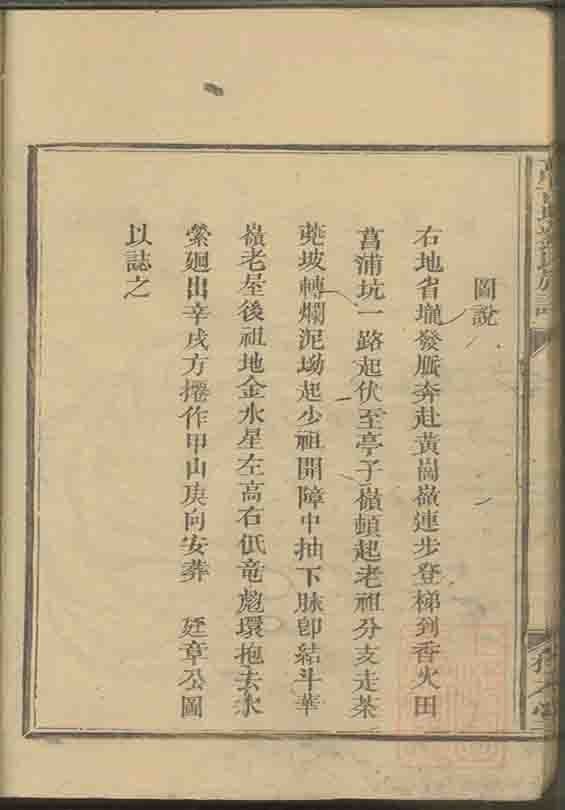 圖說
右地省壠發脈奔赴黃崗嶺連步登梯到香火田
菖浦坑一路起伏至亭子嶺頓起老祖分支走茶
蔸坡轉爛泥坳起少祖開障中抽下脉卽結斗華
嶺老屋後祖地金水星左高右低竜彪環抱去水
縈廻出辛戌方擇作甲山庚向安葬 廷章公圖
以誌之